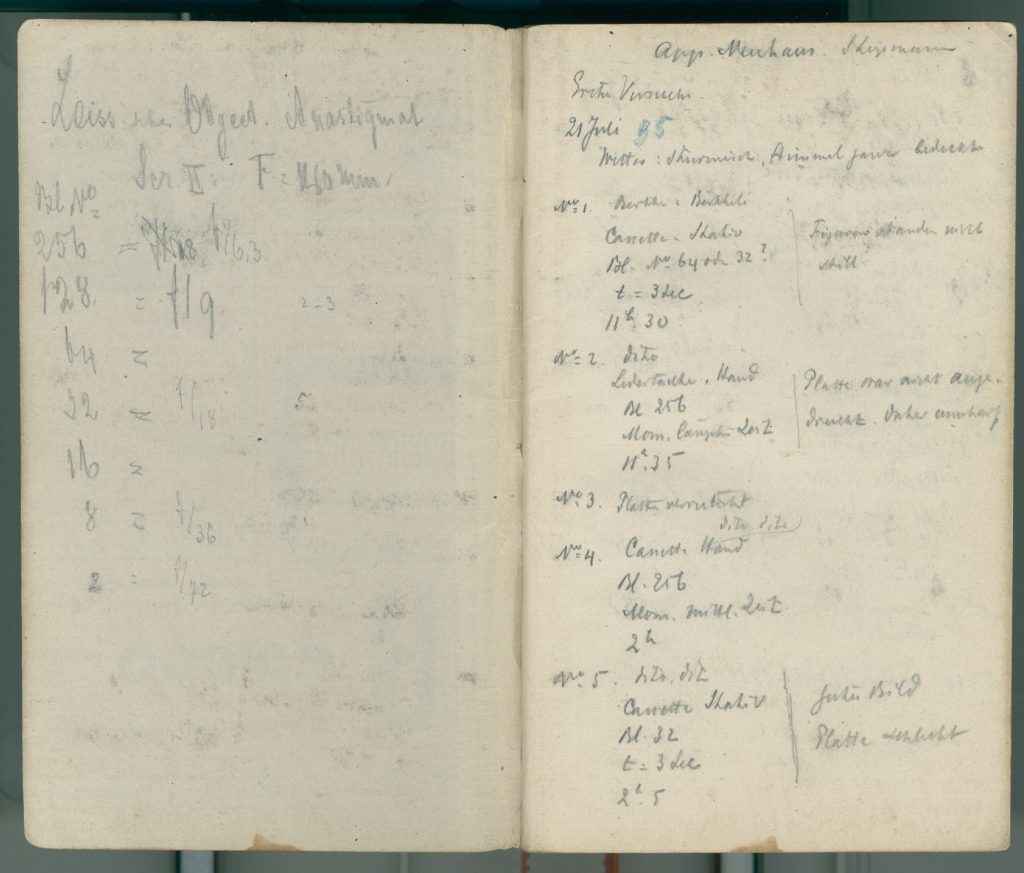 Zeiss Object. Anastigmat
Ser II. F =
Bl. No
256 = f/6,3
128 = f/9 2-3
64 =
32 = f/18 5
16 =
8 = f/36
2 = f/72
App. Neuhaus
Erste Versuche.
21 Juli 95
Wetter: Stürmisch, Himmel ganz bedeckt
No 1.
Cassette. Stativ
Bl. No 64 od 32?
t = 3 Sec
11h 30
Figuren standen nicht
still
No 2. dito
Ledertasche. Hand
Bl. 256
Mom. Zeit
11h. 35
Platte war nicht ange-
drückt. daher unscharf
No 3. Platte verrutscht
dito dito
No 4. Cassette Hand
Bl. 256
Mom. mittl. Zeit
2h
No 5. dito. dit
Cassette Stativ
Bl. 32
t = 3 Sec
2h. 5
gutes Bild
Platte schlecht